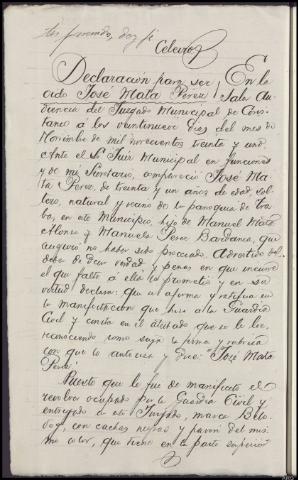 Celeiro
Declaración para ser
oido José Mata Pérez
En la
Sala Au-
diencia del Juzgado Municipal de
á los veintinueve dias del mes de
Noviembre de mil novecientos treinta y uno
Ante el Sr. Juez Municipal en funciones
y de mi Secretario, compareció José Ma-
ta Pérez, de treinta y un años de edad, sol-
tero, natural y vecino de la parroquia de
en este Municipio, hijo de Manuel Mata
Alonso y Manuela Pérez Bardanca, que
aseguró no haber sido procesado. Advertido del
deber de decir verdad y penas en que incurre
el que falta á ella lo prometió y en su
virtud declara: que se afirma y ratifica en
la manifestacion que hizo á la Guardia
Civil y consta en el atestado que se le lee,
reconociendo como suya la firma y rúbrica
con que lo autoriza y dice: José Mata
Pérez.
Puesto que le fue de manifiesto el
revolver ocupado por la Guardia Civil y
entregado en este Juzgado, marca
con cachas negras y pavón del mis-
mo color, que tiene en la parte superior